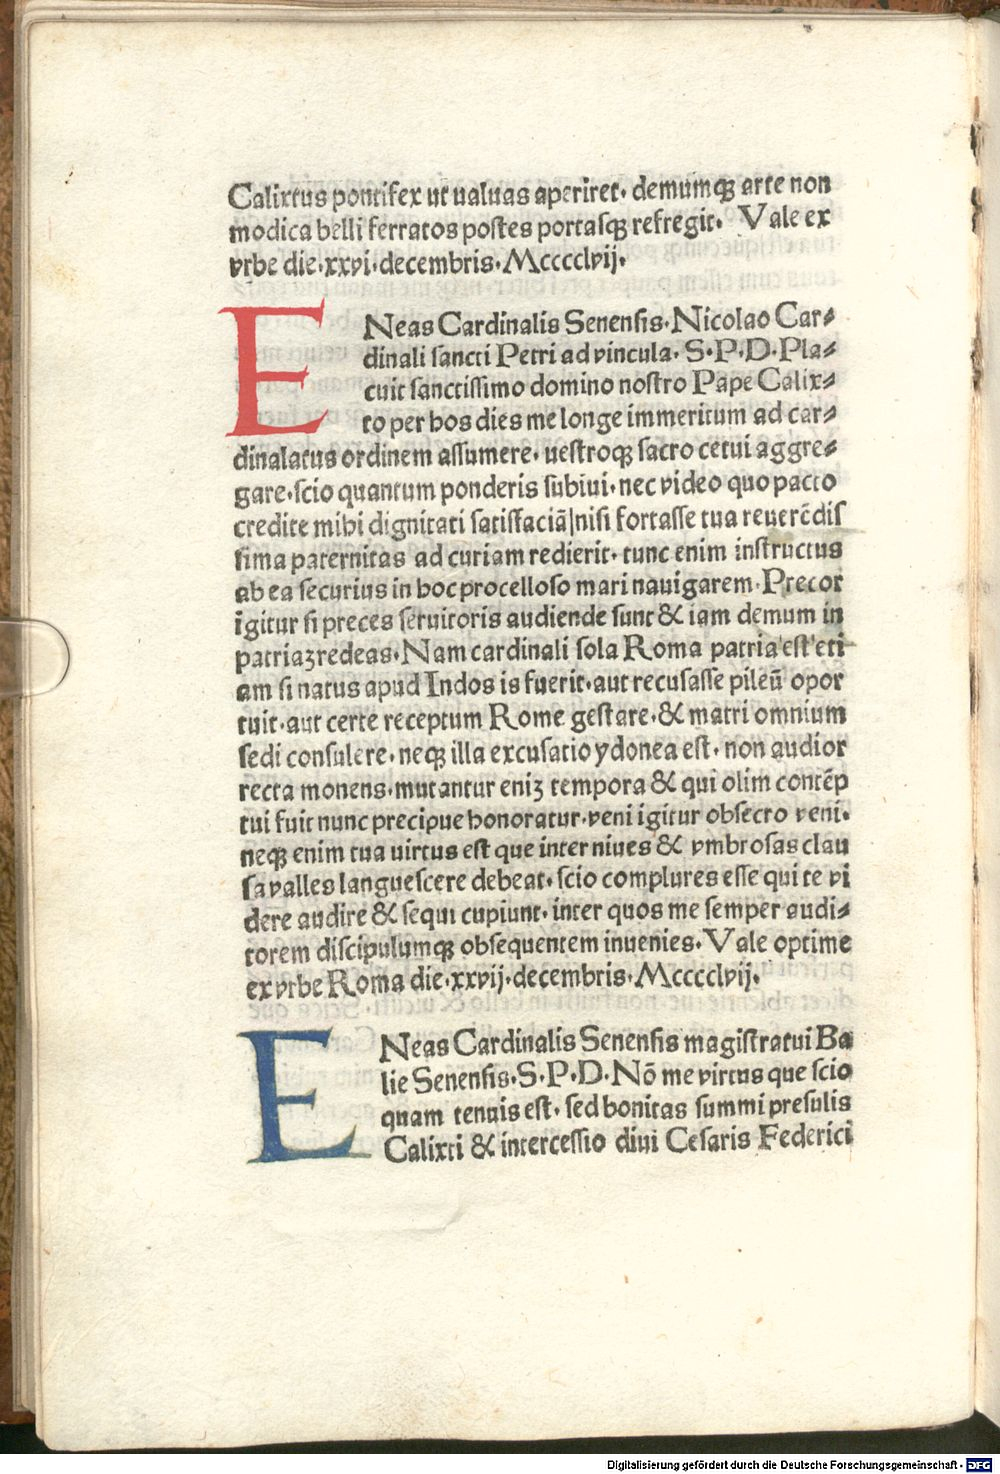 Calixtus pontifex ut ualuas aperiret· demumqꝫ arte non
modica belli ferratos postes portasqꝫ refregit· Vale ex
vrbe die·xxvi·decembris·Mcccclvij·
ENeas Cardinalis Senensis·Nicolao Car⸗
dinali sancti Petri ad vincula· S·P·D·Pla⸗
cuit sanctissimo domino nostro Pape Calix⸗
to per hos dies me longe immeritum ad car⸗
dinalatus ordinem assumere· uestroqꝫ sacro cetui aggre⸗
gare·scio quantum ponderis subiui·nec video quo pacto
credite mihi dignitati satisfaciā|nisi fortasse tua reuerēdis
sima paternitas ad curiam redierit· tunc enim instructus
ab ea securius in hoc procelloso mari nauigarem·Precor
igitur si preces seruitoris audiende sunt & iam demum in
patriaꝫ redeas·Nam cardinali sola Roma patria est eti
am si natus apud Indos is fuerit·aut recusasse pileū opor
tuit·aut certe receptum Rome gestare·& matri omnium
sedi consulere·neqꝫ illa excusatio ydonea est· non audior
recta monens·mutantur eniꝫ tempora & qui olim contēp
tui fuit nunc precipue honoratur·veni igitur obsecro veni·
neqꝫ enim tua uirtus est que inter niues & vmbrosas clau
sa valles languescere debeat·scio complures esse qui te vi
dere audire & sequi cupiunt·inter quos me semper audi⸗
torem discipulumqꝫ obsequentem inuenies·Vale optime
ex vrbe Roma die·xxvij·decembris·Mcccclvij·
ENeas Cardinalis Senensis magistratui Ba
lie Senensis·S·P·D·Nō me virtus que scio
quam tenuis est· sed bonitas summi presulis
Calixti & intercessio diui Cesaris Federici
Digitalisierung gefördert durch die Deutsche Forschungsgemeinschaft - DFG